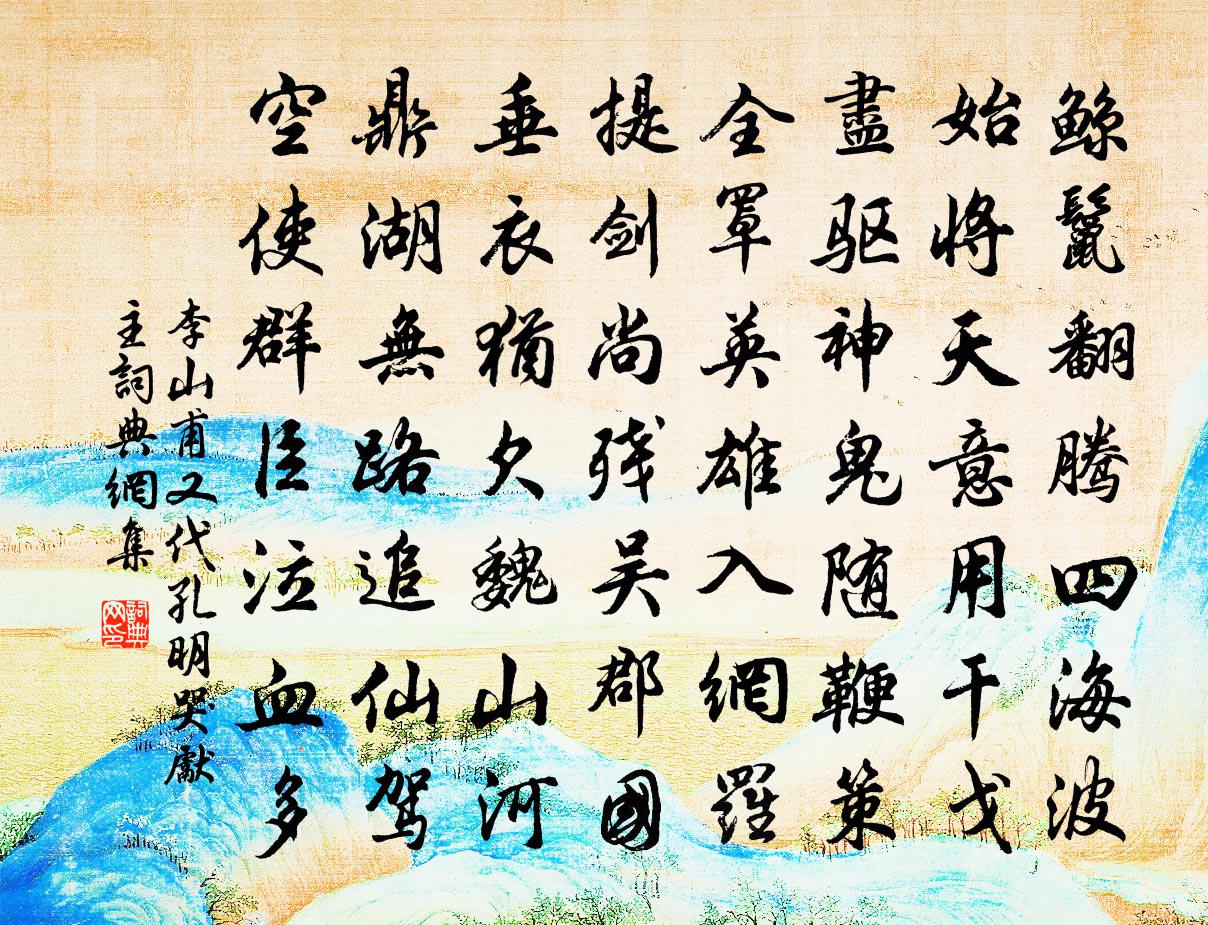 鯨鬣翻騰四海波
始將天意用干戈
盡驱神鬼随鞭策
全罩英雄入網羅
提劍尚残吴郡國
垂衣猶欠魏山河
鼎湖無路追仙驾
空使群臣泣血多
李山甫又代孔明哭獻
主詞典網集
詞典网印